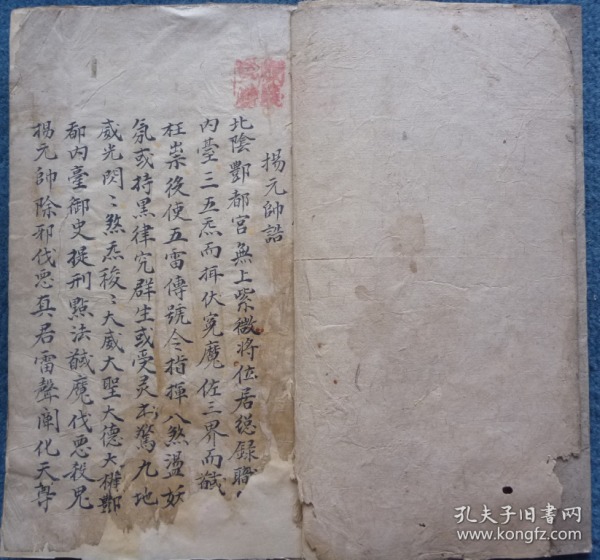 揚元帥誥
北陰酆都宮無上紫微將位居總錄職
內臺三五炁而拜伏寃魔佐三界而馘
枉祟後使五雷傳號令指揮八煞盪妖
氛或持黑律究群生或受灵不驚九地
威光閃〻煞炁稜〻大威大聖大德大權酆
都內臺御史提刑點法馘魔伐悪投鬼
揚元帥除邪伐悪真君雷聲闡化天尊
孔夫子旧书网
www.kongfz.com